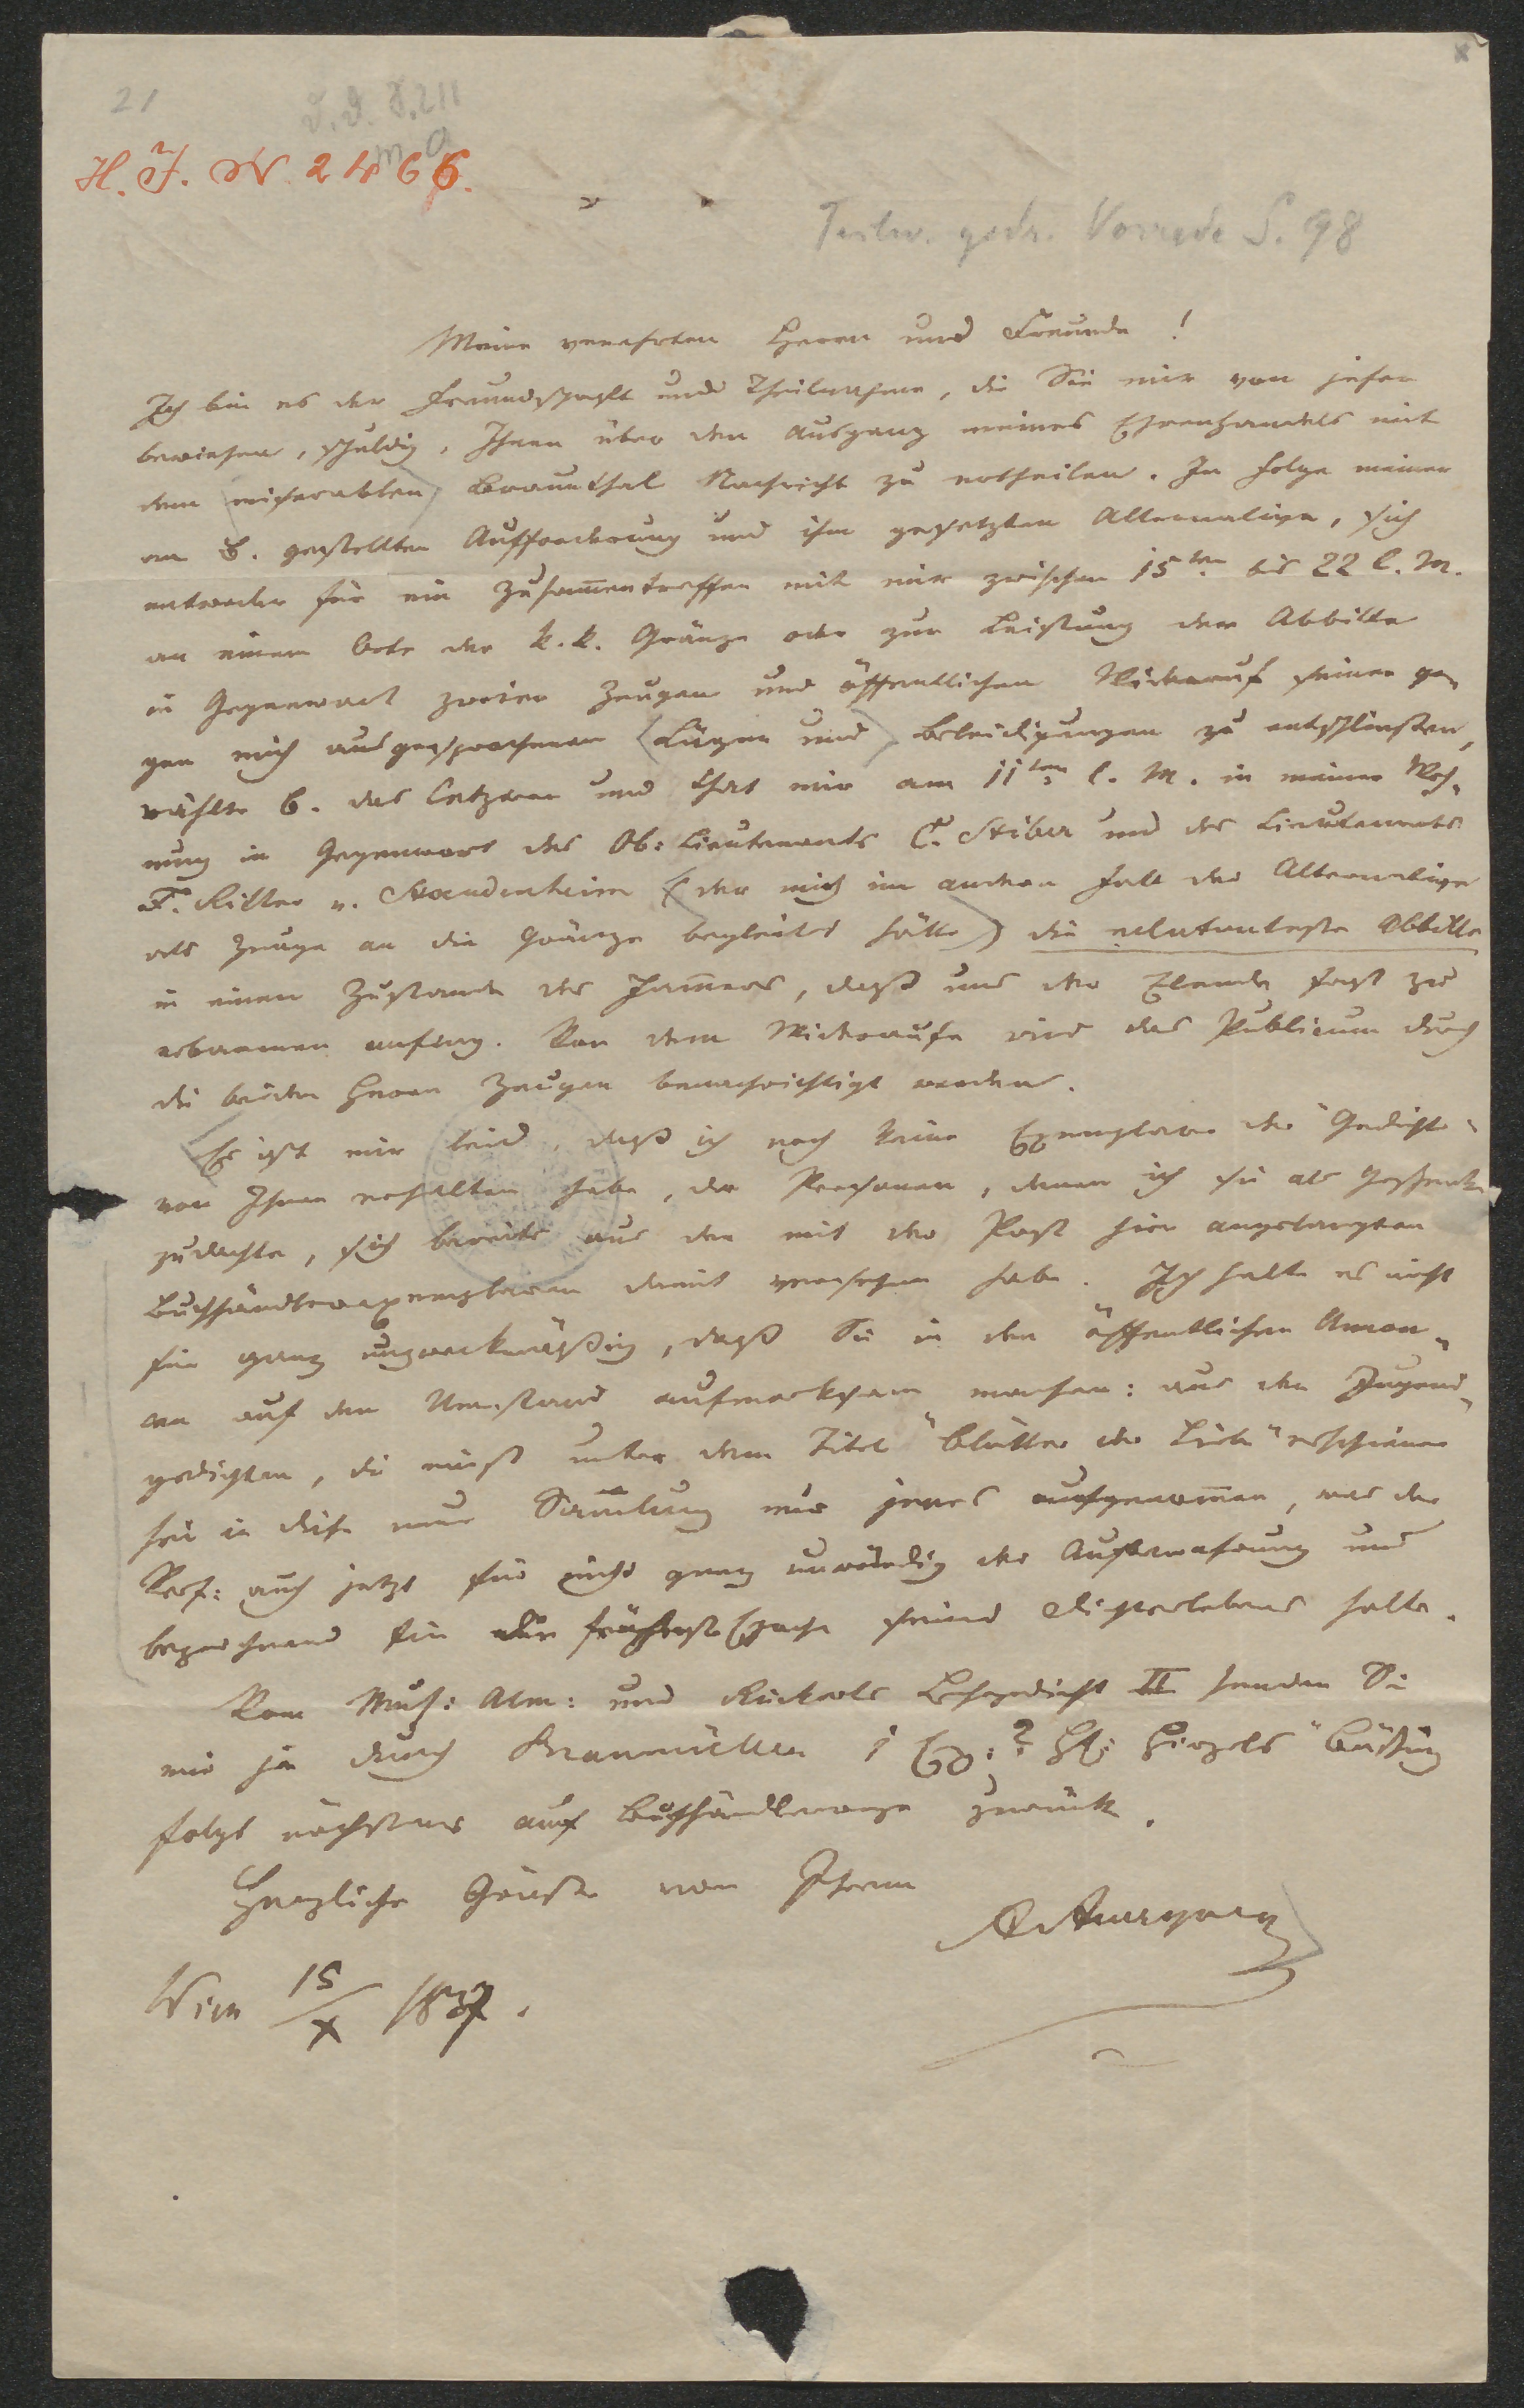 21
H. I. N. 2466.
Teilw. gedr. Vorrede S. 98
Meine verehrten Herren und Freunde!
Ich bin es der Freundschaft und Theilnahme, die Sie mir von jeher
bewiesen, schuldig, Ihnen über den Ausgang meines Ehrenhandels mit
dem (miserablen) Braunthal Nachricht zu ertheilen. In Folge meiner
an B. gestellten Aufforderung und ihm gesetzten Alternative, sich
entweder für ein Zusam̅entreffen mit mir zwischen 15ten bis 22 l. M.
an einem Orte der k. k. Gränze oder zur Leistung der Abbitte
in Gegenwart zweier Zeugen und öffentlichen Widerruf seiner ge-
gen mich ausgesprochenen (Lügen und) Beleidigungen zu entschließen,
wählte B. das Letztere und that mir am 11ten l. M. in meiner Woh-
nung in Gegenwart des Ob: Lieutenants C. Stiber und des Lieutenants
F. Ritter v. Staudenheim (der mich im andern Fall der Alternative
als Zeuge an die Gränze begleitet hätte) die eclatanteste Abbitte
in einem Zustande des Jam̅ers, daß uns der Elende fast zu
erbarmen anfing. Von dem Widerrufe wird das Publicum durch
die beiden Herren Zeugen benachrichtigt werden.
Es ist mir leid, daß ich noch keine Exemplare der "Gedichte"
von Ihnen erhalten habe, da Personen, denen ich sie als Geschenk
zudachte, sich bereits aus den mit der Post hier angelangten
Buchhändlerexemplaren damit versehen haben. Ich halte es nicht
für ganz unzweckmäßig, daß Sie in den öffentlichen Annon-
cen auf den Umstand aufmerksam machen: aus den Jugend-
gedichten, die einst unter dem Titel "Blätter der Liebe" erschienen
sei in diese neue Sam̅lung nur jenes aufgenom̅en, was der
Verf: auch jetzt für nicht ganz unwürdig der Aufbewahrung und
bezeichnend für die früheste Epoche seines Dichterlebens halte.
Vom Mus: Alm: und Rückerts Lehrgedicht II senden Sie
mir ja durch Braumüller 1 Ex:? H: Hirzels
folgt nächstens auf Buchhändlerwege zurück.
Herzliche Grüße von Ihrem
AAuersperg
Wien 15/X 1837.